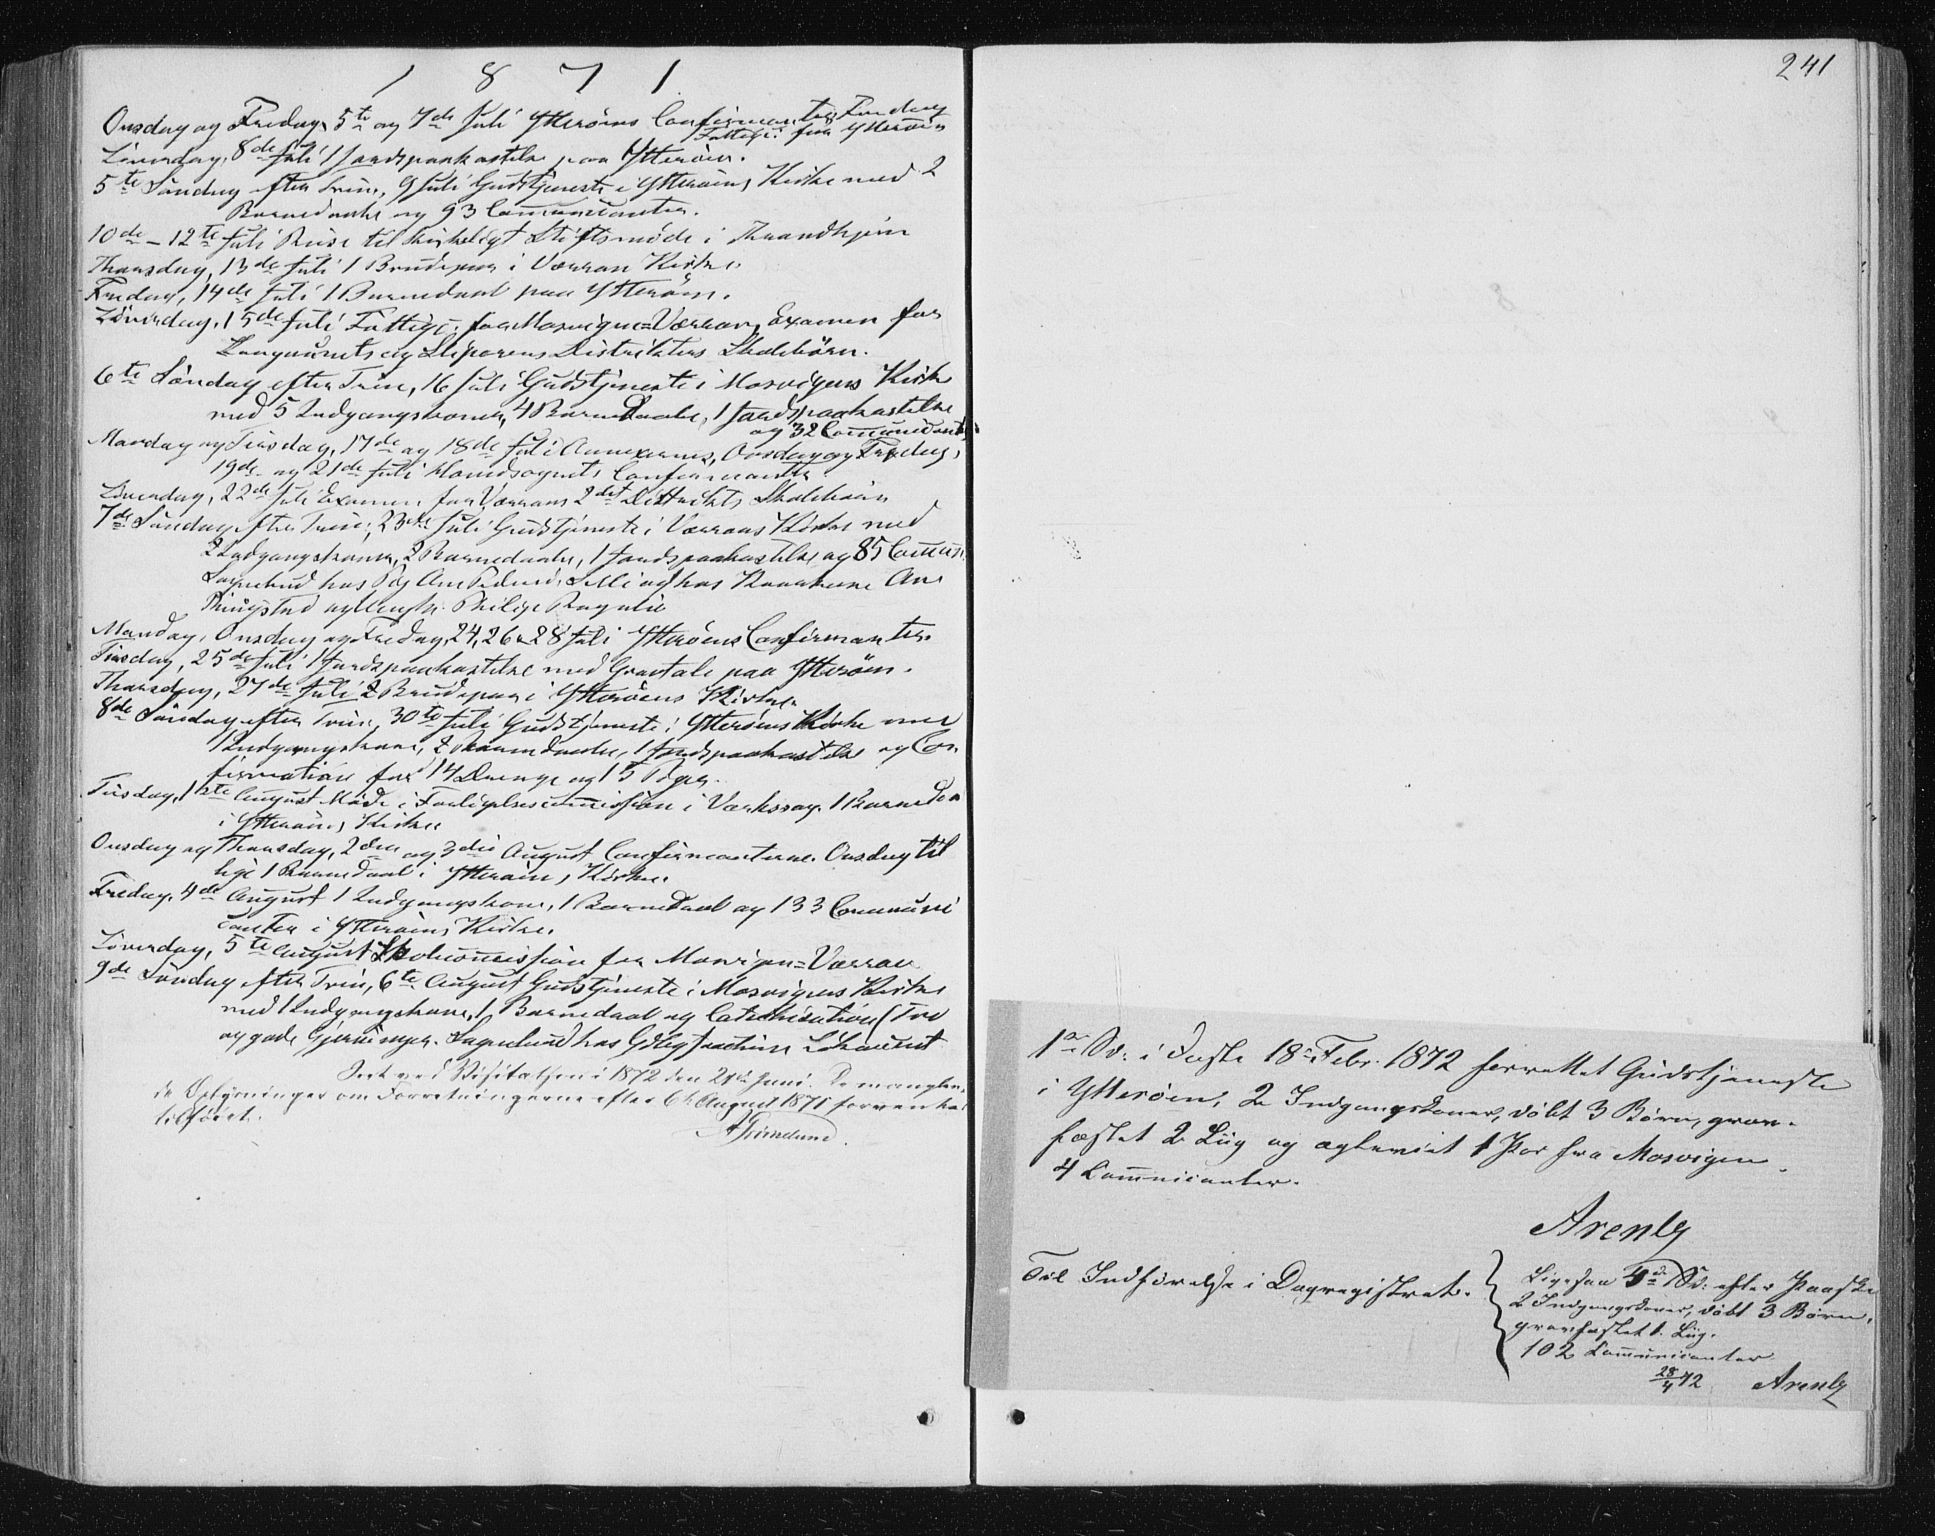 1 8 7 1
Onsdag og Fredag, 5te og 7de Juli Ytterøens Confirmanter, Fredag
Fattigc. for Ytterøen
Löverdag, 8de Juli 1 Jordspaakastelse paa Ytterøen.
5te Söndag efter Trin, 9 Juli Gudstjeneste i Ytterøens Kirke med 2
Barnedaabe og 93 Communicanter.
10de – 12te Juli Reise til kirkeligt Stiftsmöde i Throndhjem
Thorsdag, 13de Juli 1 Brudepar i Værran Kirke.
Fredag, 14de Juli 1 Barnedaab paa Ytterøen.
Löverdag, 15de Juli Fattigc. for Mosvigen=Værran, Examen for
og Distrikters Skolebörn.
6te Söndag efter Trin, 16 Juli Gudstjeneste i Mosvigens Kirke
med 5 Indgangskoner, 4 Barnedaabe, 1 Jordspaakastelse
og 32 Communicanter
Mandag og Tirsdag, 17de og 18de Juli Annexernes, Onsdag og Fredag,
19de og 21de Juli Hovedsognets Confirmanter
Löverdag, 22de Juli Examen for Værrans 2det Distrikts Skolebörn
7de Söndag efter Trin, 23de Juli Gudstjeneste i Værrans Kirke med
2 Indgangskoner, 2 Barnedaabe, 1 Jordspaakastelse og 85 Commun.
Sognebud hos Pig Ane og hos Ane
og
Mandag, Onsdag og Fredag, 24, 26 & 28 Juli Ytterøens Confirmanter.
Tirsdag, 25de Juli 1 Jordspaakastelse med Gravtale paa Ytterøen.
Thorsdag, 27de Juli 2 Brudepar i Ytterøens Kirke.
8de Söndag efter Trin, 30te Juli Gudstjeneste i Ytterøens Kirke med
1 Indgangskone, 2 Barnedaabe, 1 Jordspaakastelse og Con-
firmation for 14 Drenge og 15 Piger.
Tirsdag, 1ste August Möde i Forligelsescommission i 1 Barnedaab
i Ytterøens Kirke
Onsdag og Thorsdag, 2den og 3die August Confirmanterne. Onsdag til
lige 1 Barnedaab i Ytterøens Kirke.
Fredag, 4de August 1 Indgangskone, 1 Barnedaab og 133 Communi
canter i Ytterøens Kirke.
Löverdag, 5te August Skolecommission for Mosvigen=Værran
9de Söndag efter Trin, 6te August Gudstjeneste i Mosvigens Kirke
med 1 Indgangskone, 1 Barnedaab og Catechisation (Tro
og gode Gjerninger. Sognebud hos
Seet ved Visitatsen i 1872 den 21de Juni. De manglen-
de Oplysninger om Forretningerne efter 6te August 1871 forventes
tilføiet.
AGrimelund.
241
1ste Sö: i Faste 18de Febr. 1872 forrettet Gudstjeneste
i Ytterøen, 2 Indgangskoner, döbt 3 Börn, grav-
fæstet 2 Liig og ægteviet 1 Par fra Mosvigen.
4 Communicanter.
Arentz
Til Indförelse i Dagregistret.
Ligesaa 4de Sö: efter Paaske
2 Indgangskoner, döbt 3 Börn,
gravfæstet 1 Liig.
102 Communicanter
28/4 72 Arentz